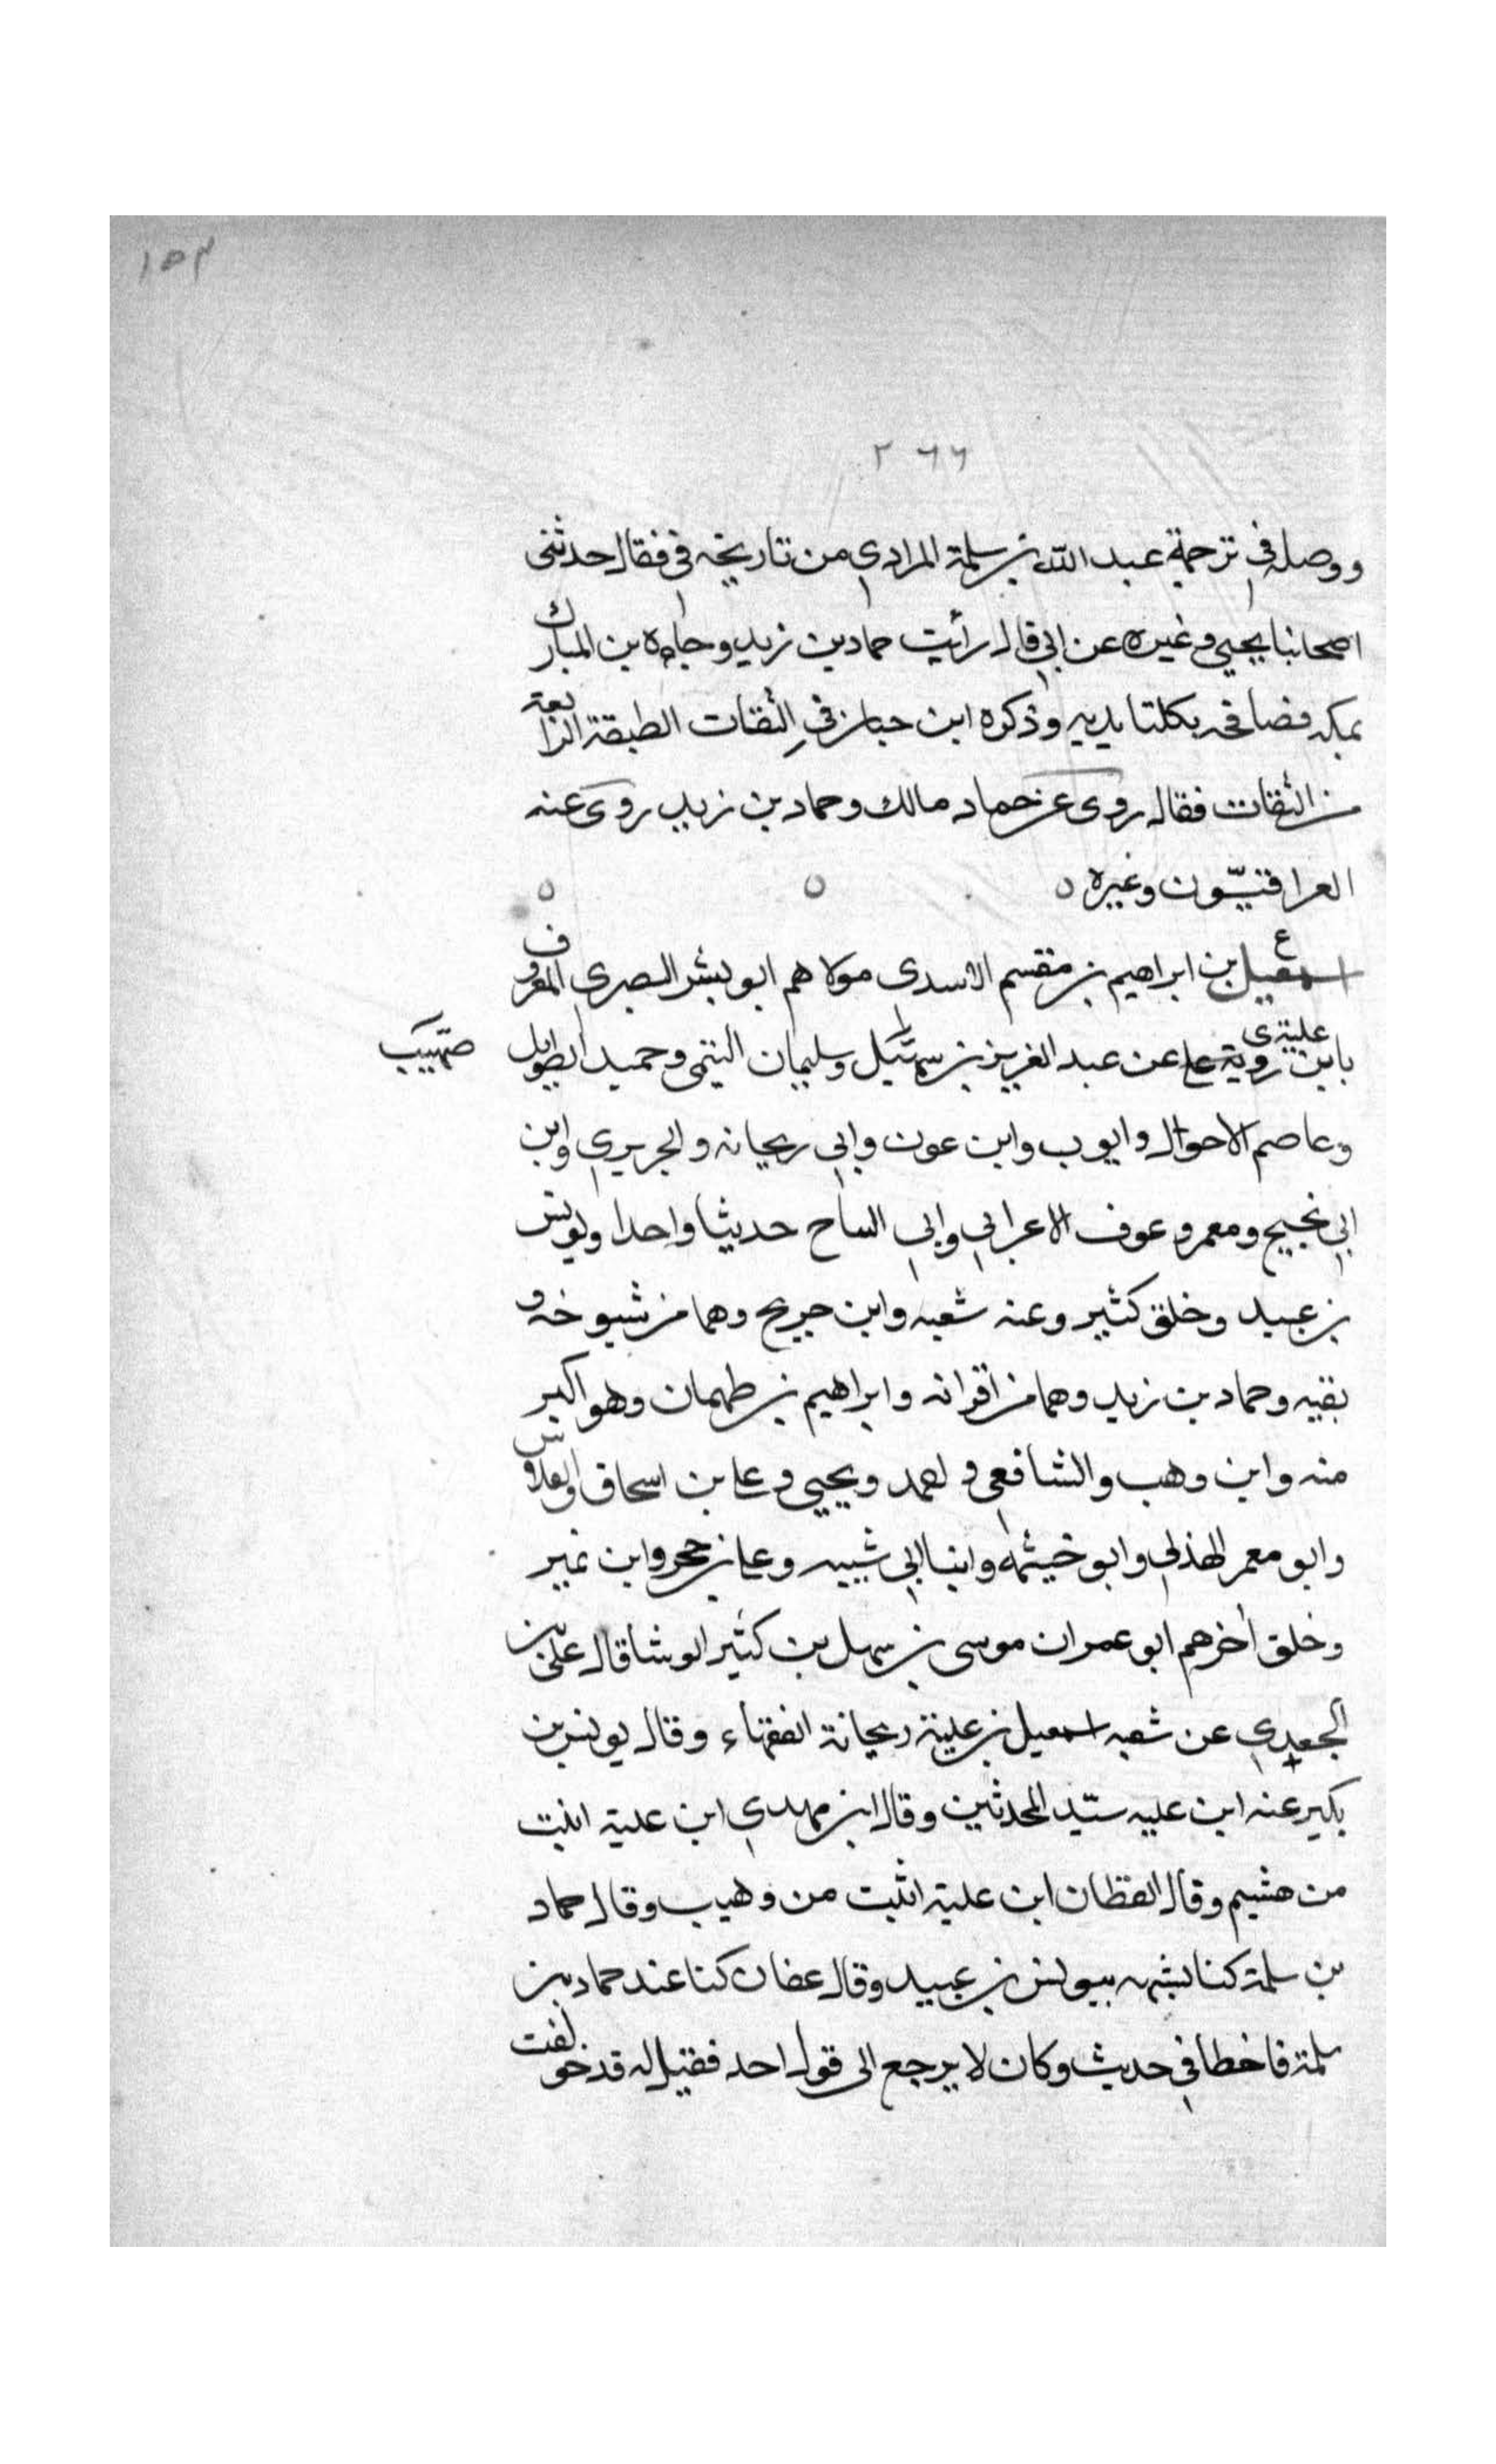 ١٥٣
٢٦٦
ووصله في ترجمة عبد الله بن سلمة المرادي من تاريخه في فقال حدثني
اصحابنا يحيي وغيره عن ابي قال رأيت حماد بن زيد وجاءه بن المبارك
بمكه فصافحه بكلتا يديه وذكره ابن حبان في الثقات الطبقة الرابعة
من الثقات فقال روى عن حماد مالك وحماد بن زيد روى عنه
العراقيّون وغيره ٥ ٥ ٥
ع اسمعيل بن ابراهيم بن مقسم الاسدى مولاهم ابو بشر البصرى المعروف
بابن علية روى عن عبد العزيز بن وسليمان التيمى وحميد الطويل
صهيب
وعاصم الاحوال وايوب وابن عون وابي ريحانه والجريري وابن
ابي نجيح ومعمر وعوف الاعرابي وابي الساح حديثا واحدا ويونس
بن عبيد وخلق كثير وعنه شعبه وابن جريح وهما من شيوخه و
بقيه وحماد بن زيد وهما من اقرانه وابراهيم بن طهمان وهو اكبر
منه وابن وهب والشافعى واحمد ويحيي وعلى بن اسحاق والفلاس
وابو معمر الهذلي وابو خيثمه وابنا ابي شيبه وعلى بن حجر وابن نمير
وخلق أخرهم ابو عمران موسى بن سهل بن كثير الوشا قال على بن
الجعدي عن شعبه اسمعيل بن علية ريحانة الفقهاء وقال يونس بن
بكير عنه ابن عليه سيّد المحدثين وقال ابن مهدي ابن علية اثبت
من هشيم وقال القطان ابن علية اثبت من وهيب وقال حماد
بن سلمة كنا نشبهه بيونس بن عبيد وقال عفان كنا عند حماد بن
سلمة فاخطأ في حديث وكان لا يرجع الى قول احد فقيل له قد خولفت